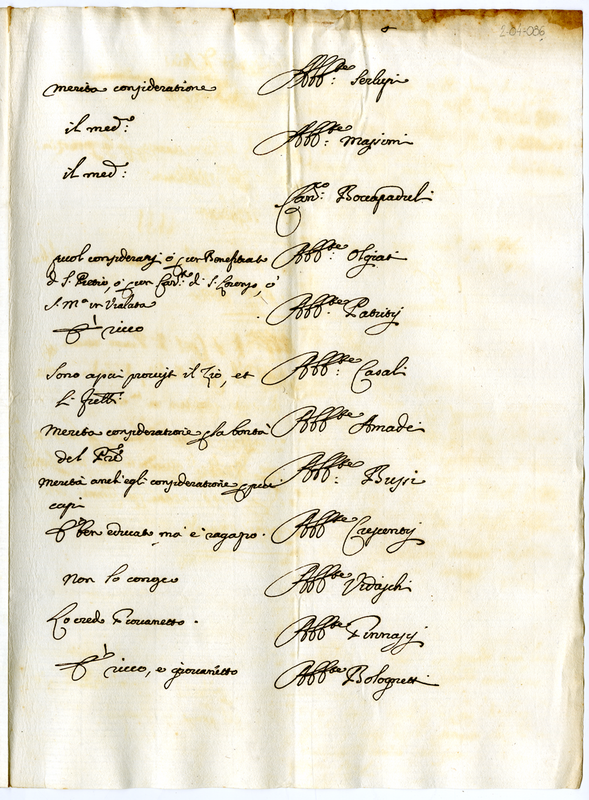 2-04-086
merita consideratione Abb.te: Serlupi
il med.o Abb.te: Massimi
il med.o:
Can.co: Boccapadueli
puol considerarsi ò per Benefitiato Abb.te: Olgiati
di S. Pietro, ò per Can.co di S. Lorenzo, ò
S. M.a in Vialata Abb.te: Patritij
È ricco
Sono assai provisti il Zio, et Abb.te: Casali
li fretti:
Merita consideratione p la bontà Abb.te Amadei
del Pre
Merita anch'egli consideratione p più Abb.te: Bussi
capi
È ben educato mà è ragazzo. Abb.te Crescentij
Non lo conosco Abb.te Vidaschi
Lo credo Giovanetto. Abb.te Pinnasij
È ricco, e giovanetto Abb.te Bolognetti